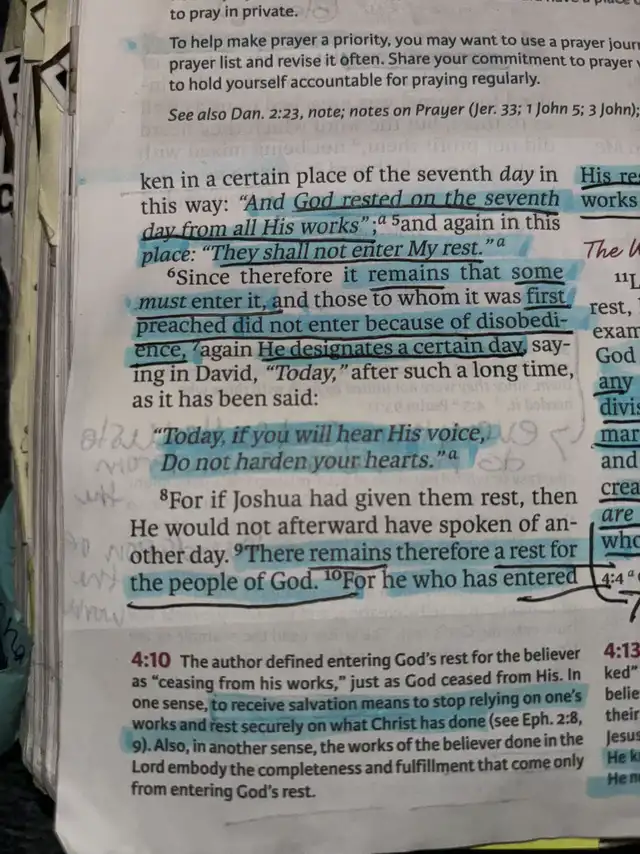 to pray in private.
To help make prayer a priority, you may want to use a prayer
prayer list and revise it often. Share your commitment to prayer
to hold yourself accountable for praying regularly.
See also Dan. 2:23, note; notes on Prayer (Jer. 33; 1 John 5; 3 John);
ken in a certain place of the seventh day in
this way: “And God rested on the seventh
day from all His works”;a 5and again in this
place: “They shall not enter My rest.”a
6Since therefore it remains that some
must enter it, and those to whom it was first
preached did not enter because of disobedi-
ence, 7again He designates a certain day, say-
ing in David, “Today,” after such a long time,
as it has been said:
“Today, if you will hear His voice,
Do not harden your hearts.”a
8For if Joshua had given them rest, then
He would not afterward have spoken of an-
other day. 9There remains therefore a rest for
the people of God. 10For he who has entered
4:10 The author defined entering God’s rest for the believer
as “ceasing from his works,” just as God ceased from His. In
one sense, to receive salvation means to stop relying on one’s
works and rest securely on what Christ has done (see Eph. 2:8,
9). Also, in another sense, the works of the believer done in the
Lord embody the completeness and fulfillment that come only
from entering God’s rest.
His
works
The
11
rest,
God
any
and
are
who
4:4 a
4:13
ked”
their
Jesus
He
He